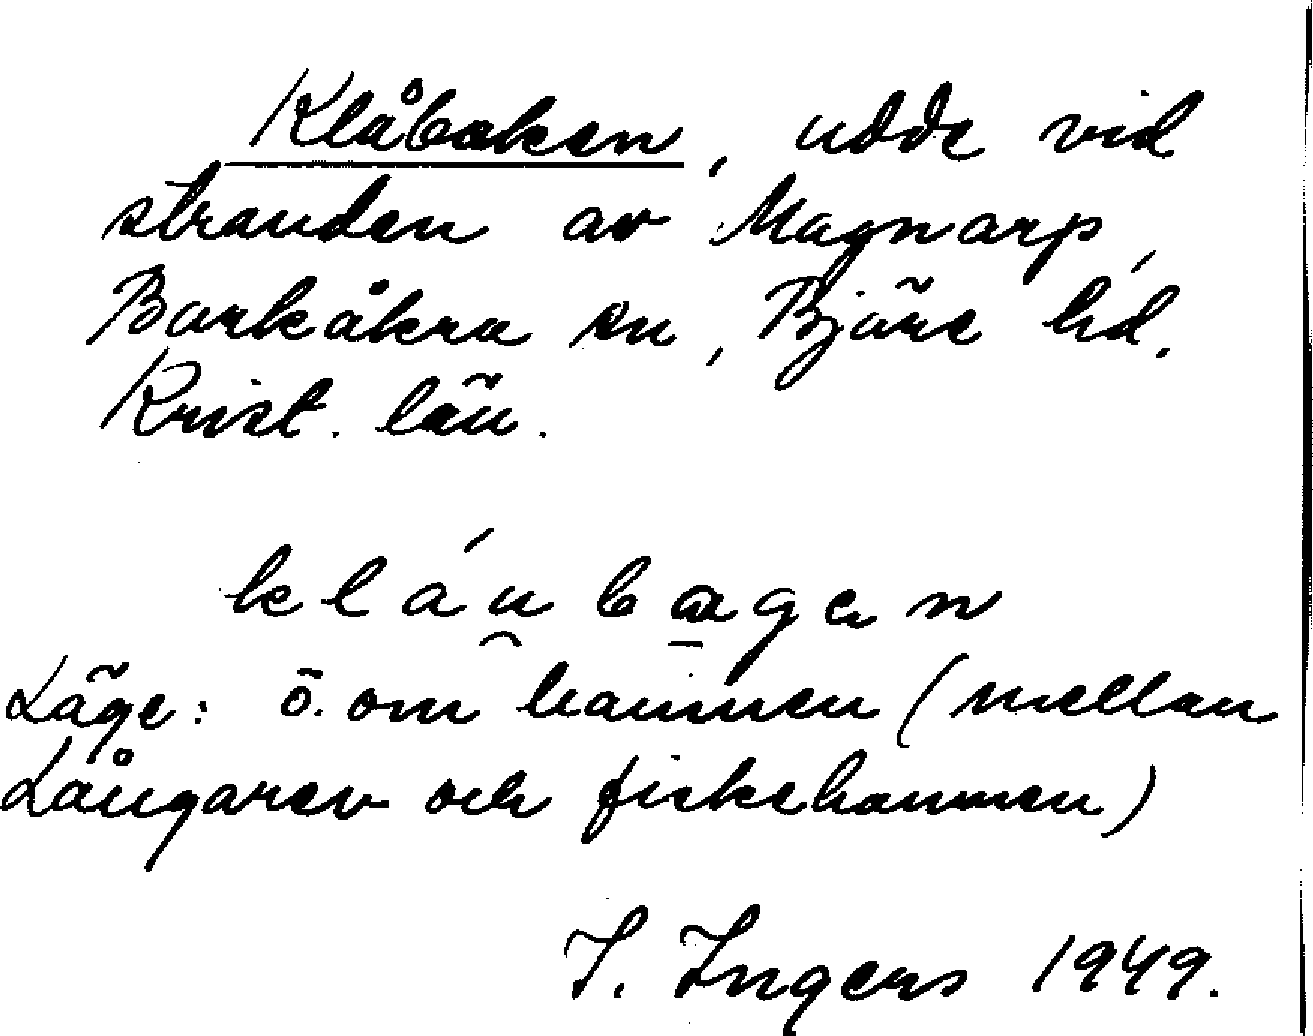 Klåbaken, udde vid
stranden av Magnarp,
Barkåkra sn, Bjäre hd.
Krist. län.
kláu̯ba̱gen
Läge: ö. om hamnen (mellan
Långarev och fiskehamnen)
I. Ingers 1949.